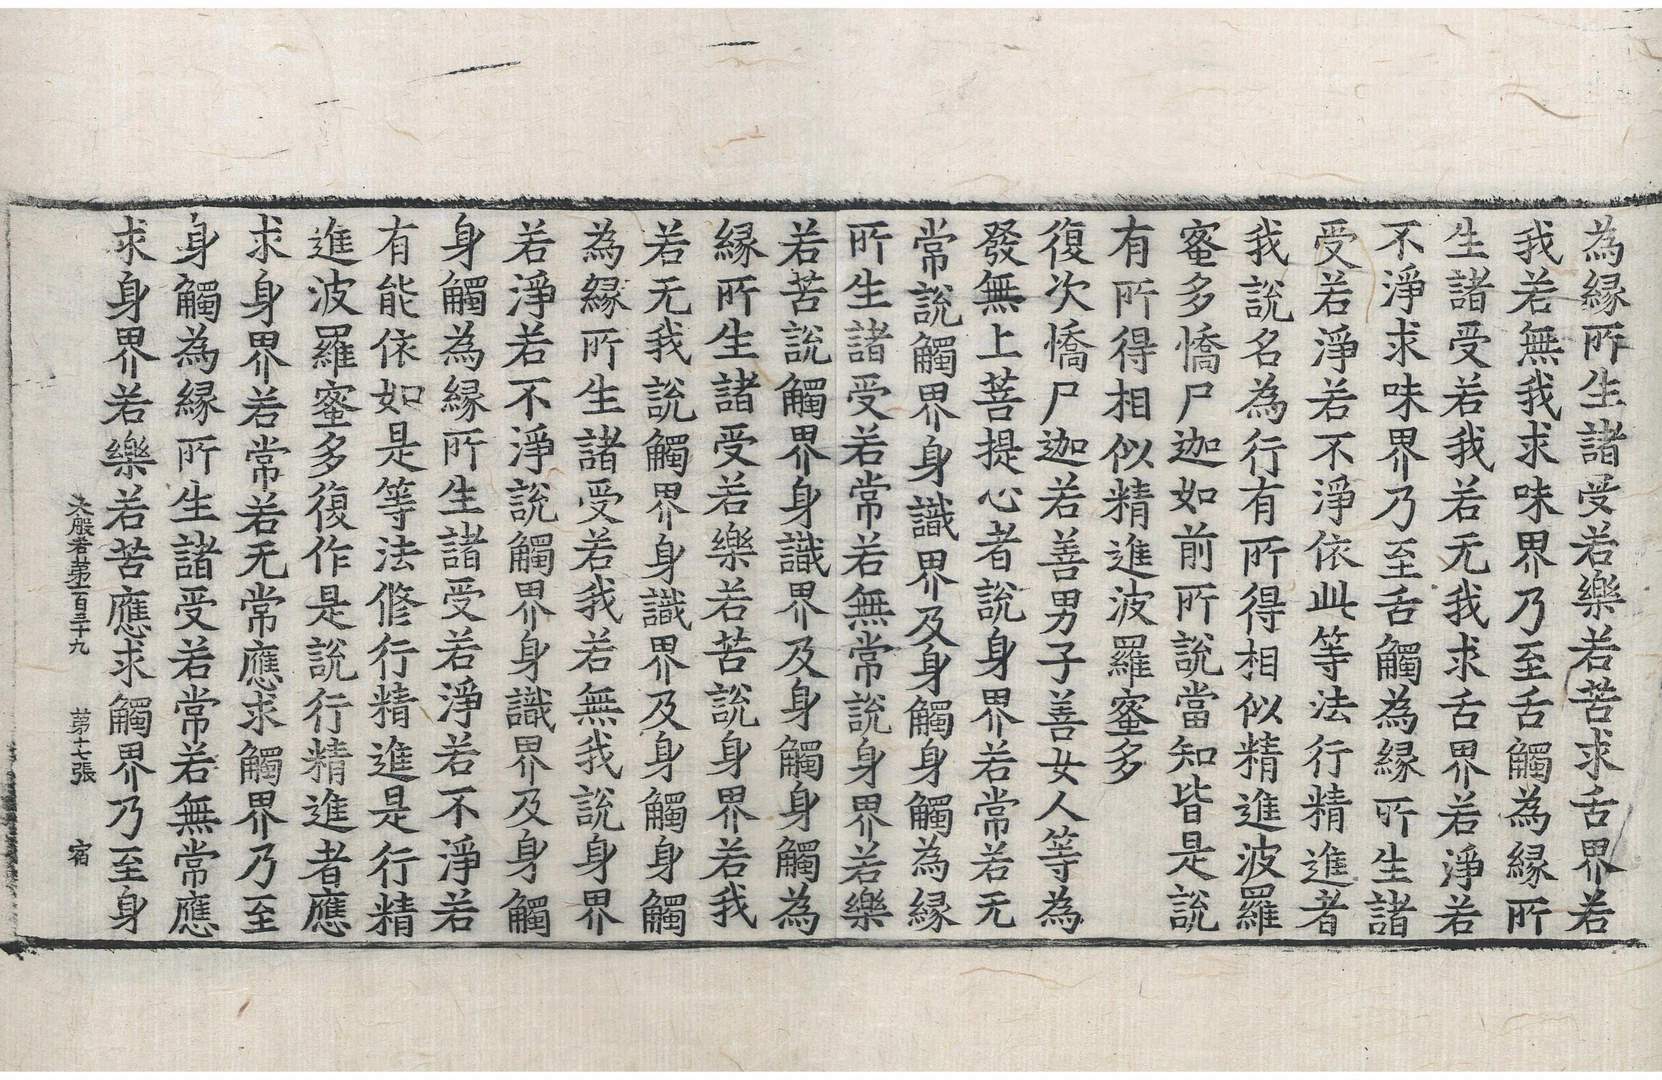 為縁所生諸受若樂若苦求舌界若
我若無我求味界乃至舌觸為縁所
生諸受若我若无我求舌界若淨若
不淨求味界乃至舌觸為縁所生諸
受若淨若不淨依此等法行精進者
我說名為行有所得相似精進波羅
蜜多憍尸迦如前所說當知皆是說
有所得相似精進波羅蜜多
復次憍尸迦若善男子善女人等為
發無上菩提心者說身界若常若无
常說觸界身識界及身觸身觸為縁
所生諸受若常若無常說身界若樂
若苦說觸界身識界及身觸身觸為
縁所生諸受若樂若苦說身界若我
若无我說觸界身識界及身觸身觸
為縁所生諸受若我若無我說身界
若淨若不淨說觸界身識界及身觸
身觸為縁所生諸受若淨若不淨若
有能依如是等法修行精進是行精
進波羅蜜多復作是說行精進者應
求身界若常若无常應求觸界乃至
身觸為縁所生諸受若常若無常應
求身界若樂若苦應求觸界乃至身
大般若第一百三十九 第十七張 宿